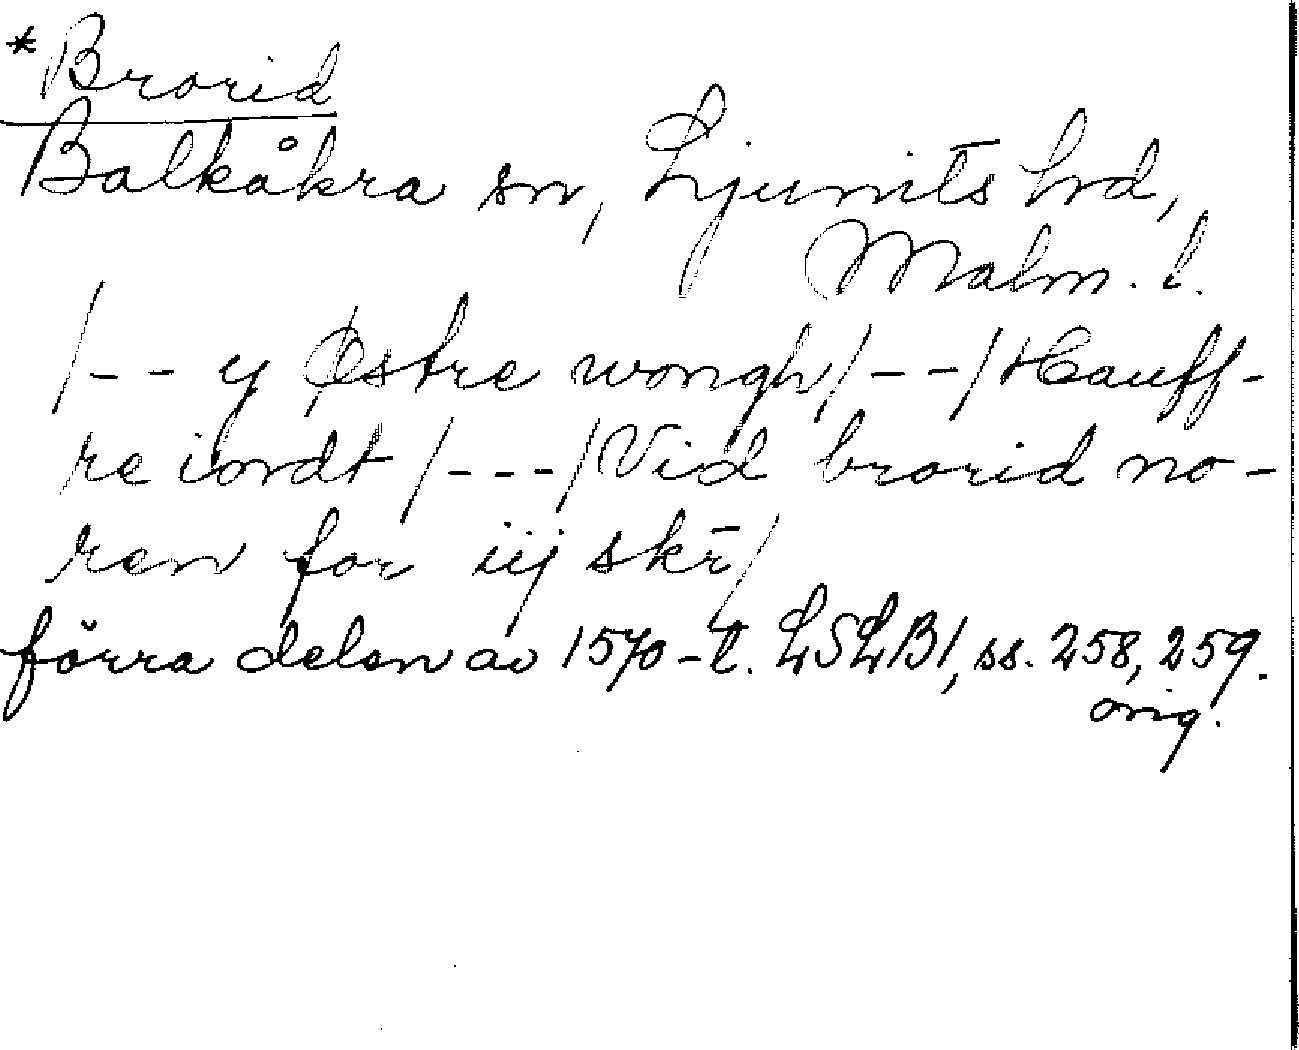 *Brorid
Balkåkra sn, Ljunits hrd,
Malm. l.
/-- y Østre wongh/--/Hauff-
re iordt/---/Vid brorid no-
ren for iij skr̄/
förra delen av 1570-t. LSLB1, ss. 258, 259.
orig.